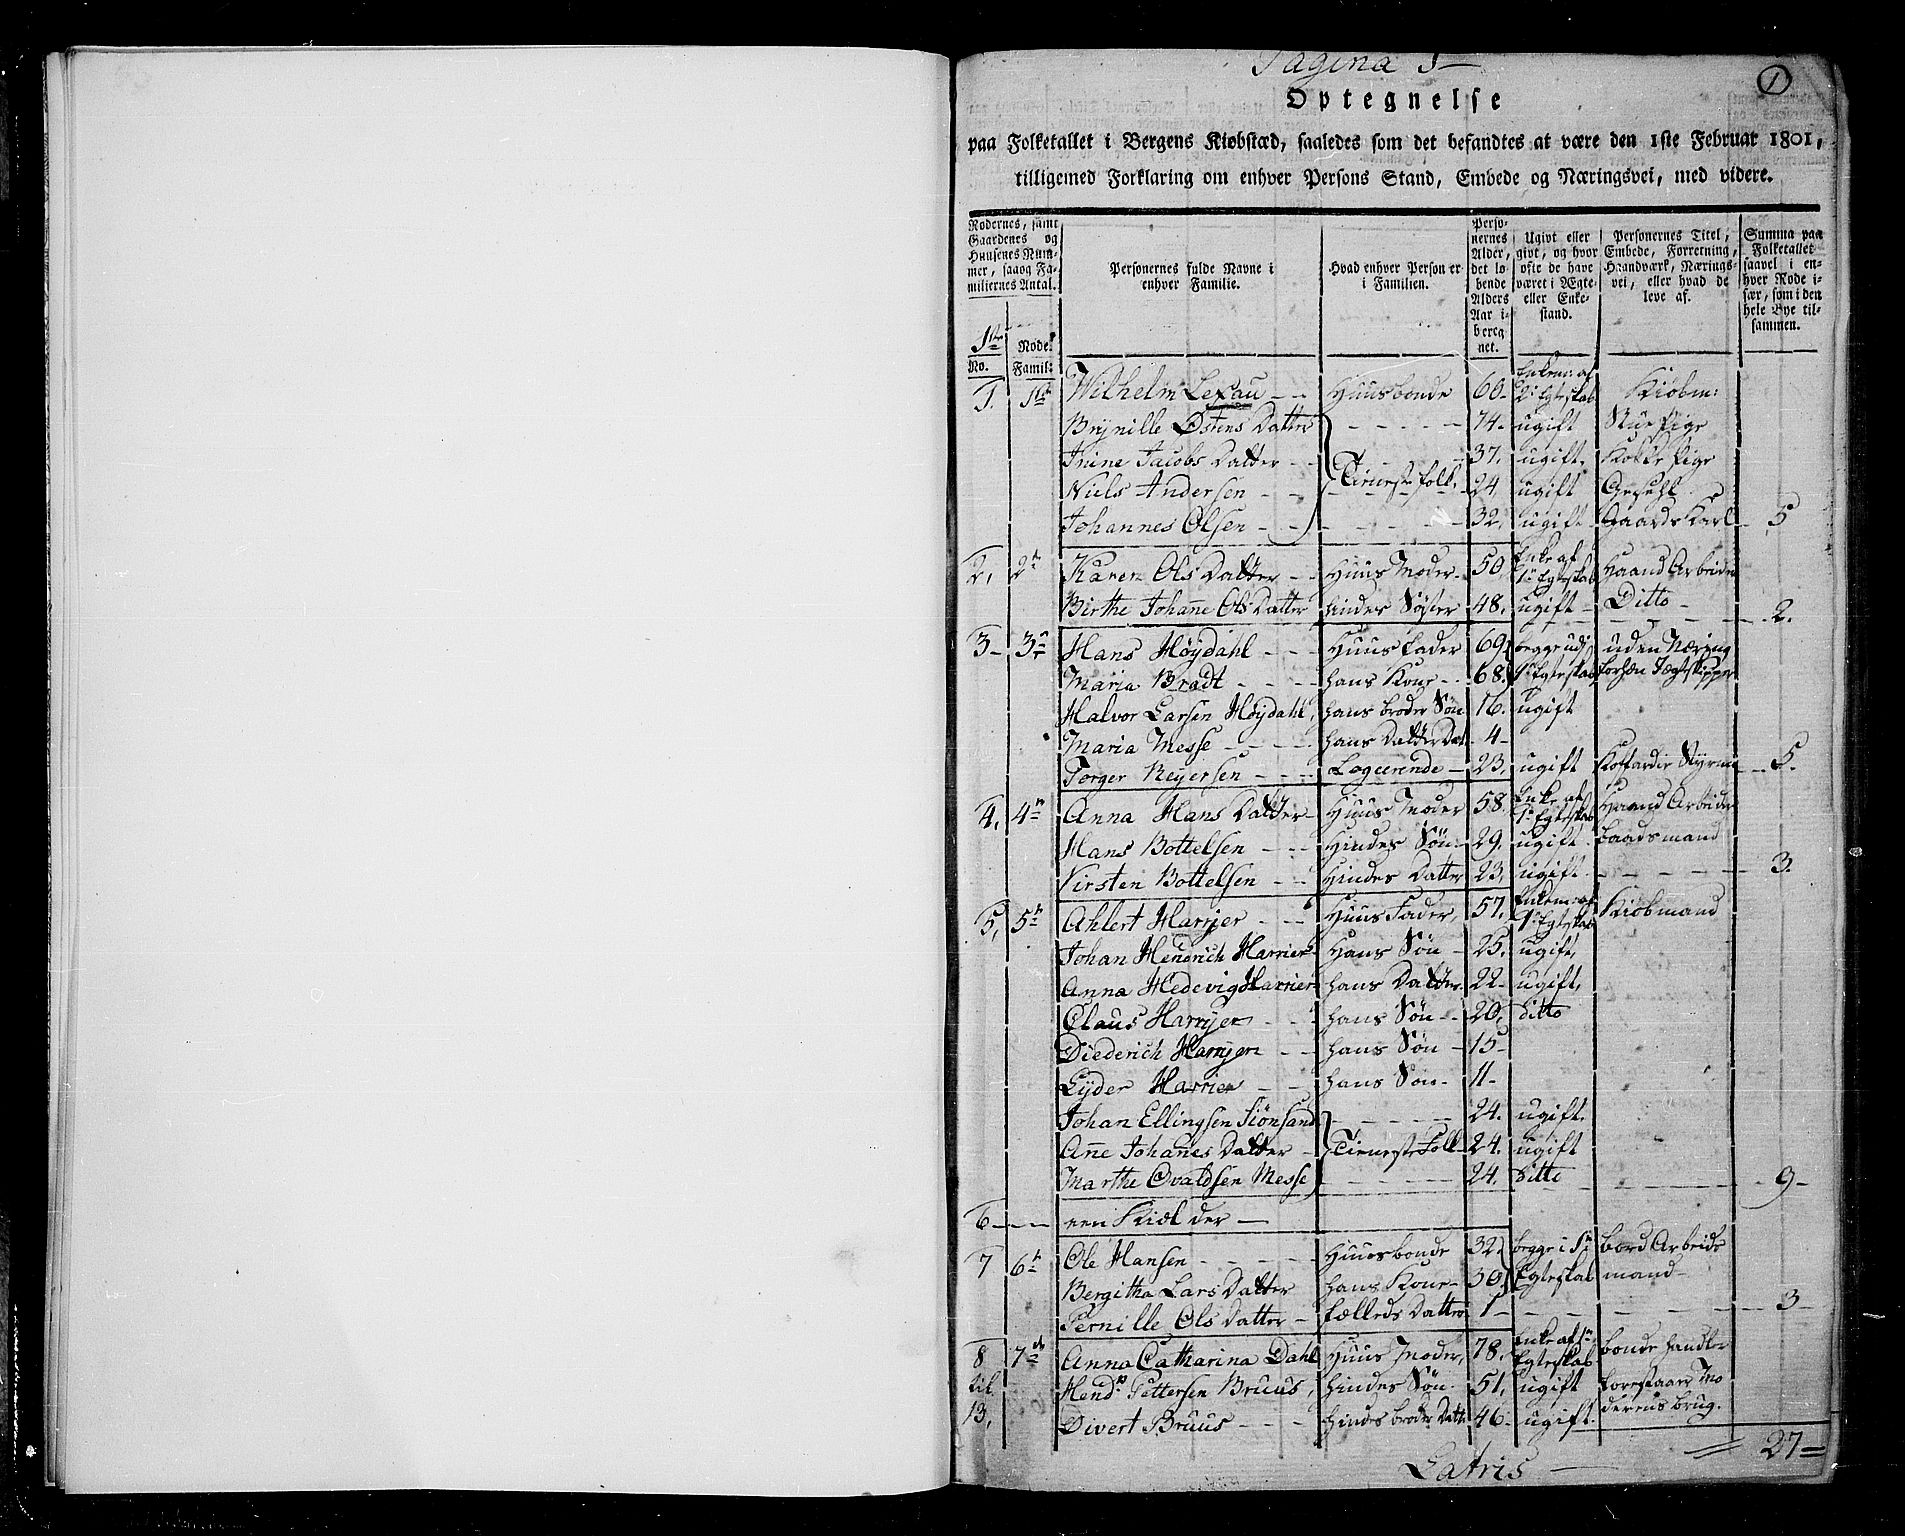 Pagina 1
1
Optegnelse
paa Folketallet i Bergens Kiøbstæd, saaledes som det befandtes at være den 1ste Februar 1801,
tilligemed Forklaring om enhver Persons Stand, Embede og Næringsvei, med videre.
Rodernes, samt Gaardenes og Huusenes Nummer, saaog Familiernes Antal.
Personernes fulde Navne i enhver Familie.
Hvad enhver Person er i Familien.
Personernes Alder, det lobende Alders Aar iberegnet.
Ugivt eller givt, og hvor ofte de have været i Ægte- eller Enkestand.
Personernes Titel, Embede, Forretning, Haandværk, Næringsvei, eller hvad de leve af.
Summa paa Folketallet saavel i enhver Rode især, som i den hele Bye tilsammen.
1ste Rode
No. Famil:
1. 1ste Wilhelm Lexau Huusbonde 60 Enkem: af 2 Egteskab Kiøbm:
Brynille Østens Datter 74 ugift Stue Pige
Trine Jacobs Datter 37 ugift Kokke Pige
Niels Andersen Tieneste folk 24 ugift Gesehl
Johannes Olsen 32 ugift Gaards Karl 5
2. 2n Karen Ols Datter Huus Moder 50 Enke af 1 Egteskab Haand Arbeide
Birthe Johanne Ols Datter hindes Søster 48 ugift Ditto 2.
3 3n Hans Høydahl Huus Fader 69 begge udi uden Næring
Maria Bradt hans Kone 68 1 Egteskab forhen Jægteskipper
Halvor Larsen Høydahl, hans broder Søn 16 ugift
Maria Messe hans Datter Dat 4
Torger Reyersen Logeerende 23 ugift Koffardie Styrm 5.
4. 4n Anna Hans Datter Huus Moder 58 Enke af 1 Egteskab Haand Arbeide
Hans Bottelsen Hindes Søn 29 ugift baadsmand
Kirsten Bottelsen Hindes Datter 23 ugift 3.
5. 5n Ahlert Harrjer Huus Fader 57 Enkem: af 1 Egteskab Kiøbmand
Johan Hendrich Harrier Hans Søn 25 ugift
Anna Hedevig Harrier hans Datter 22 ugift
Claus Harrjer hans Søn 20 ditto
Diederich Harrjer hans Søn 15
Lyder Harrier hans Søn 11
Johan Ellingsen Siønsand 24 ugift
Anne Johannes Datter Tieneste Folk 24 ugift
Marthe Ovaldsen Messe 24 ditto 9
6 een Kiælder
7 6n Ole Hansen Huusbonde 32 begge i 1 bord Arbeids
Bergitha Lars Datter hans Kone 30 Egteskab mand
Pernille Ols Datter fælleds Datter 1 3
8 til 13, 7de Anna Catharina Dahl Huus Moder 78 Enke af 1 Egteskab bonde handler
Hend: Pettersen Bruus, hindes Søn 51 ugift forestaaer Mo
Divert Bruus hindes broder Datt 46 ugift derens brug.
Latris 27